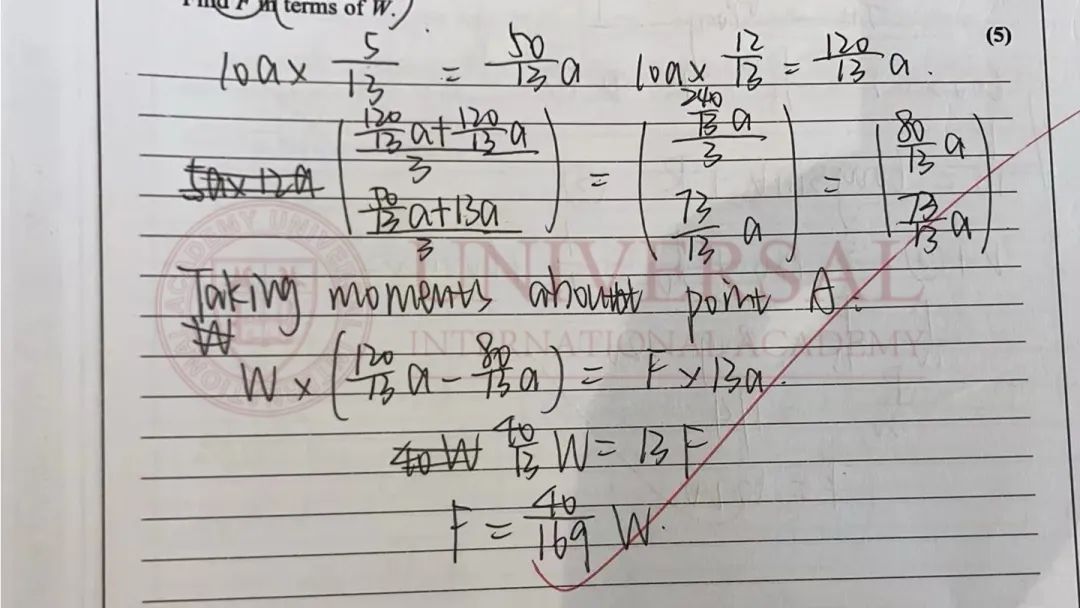 Find F in terms of W.
(5)
10a × 5/13 = 50/13 a   10a × 12/13 = 120/13 a.
5a × 12a ( (120/13 a + 120/13 a)/3 ; (50/13 a + 13a)/3 ) = ( (240/13 a)/3 ; 73/13 a ) = ( 80/13 a ; 73/13 a )
Taking moments about point A:
W
W × (120/13 a − 80/13 a) = F × 13a.
40 W 40/13 W = 13 F
F = 40/169 W.
UNIVERSAL
INTERNATIONAL ACADEMY